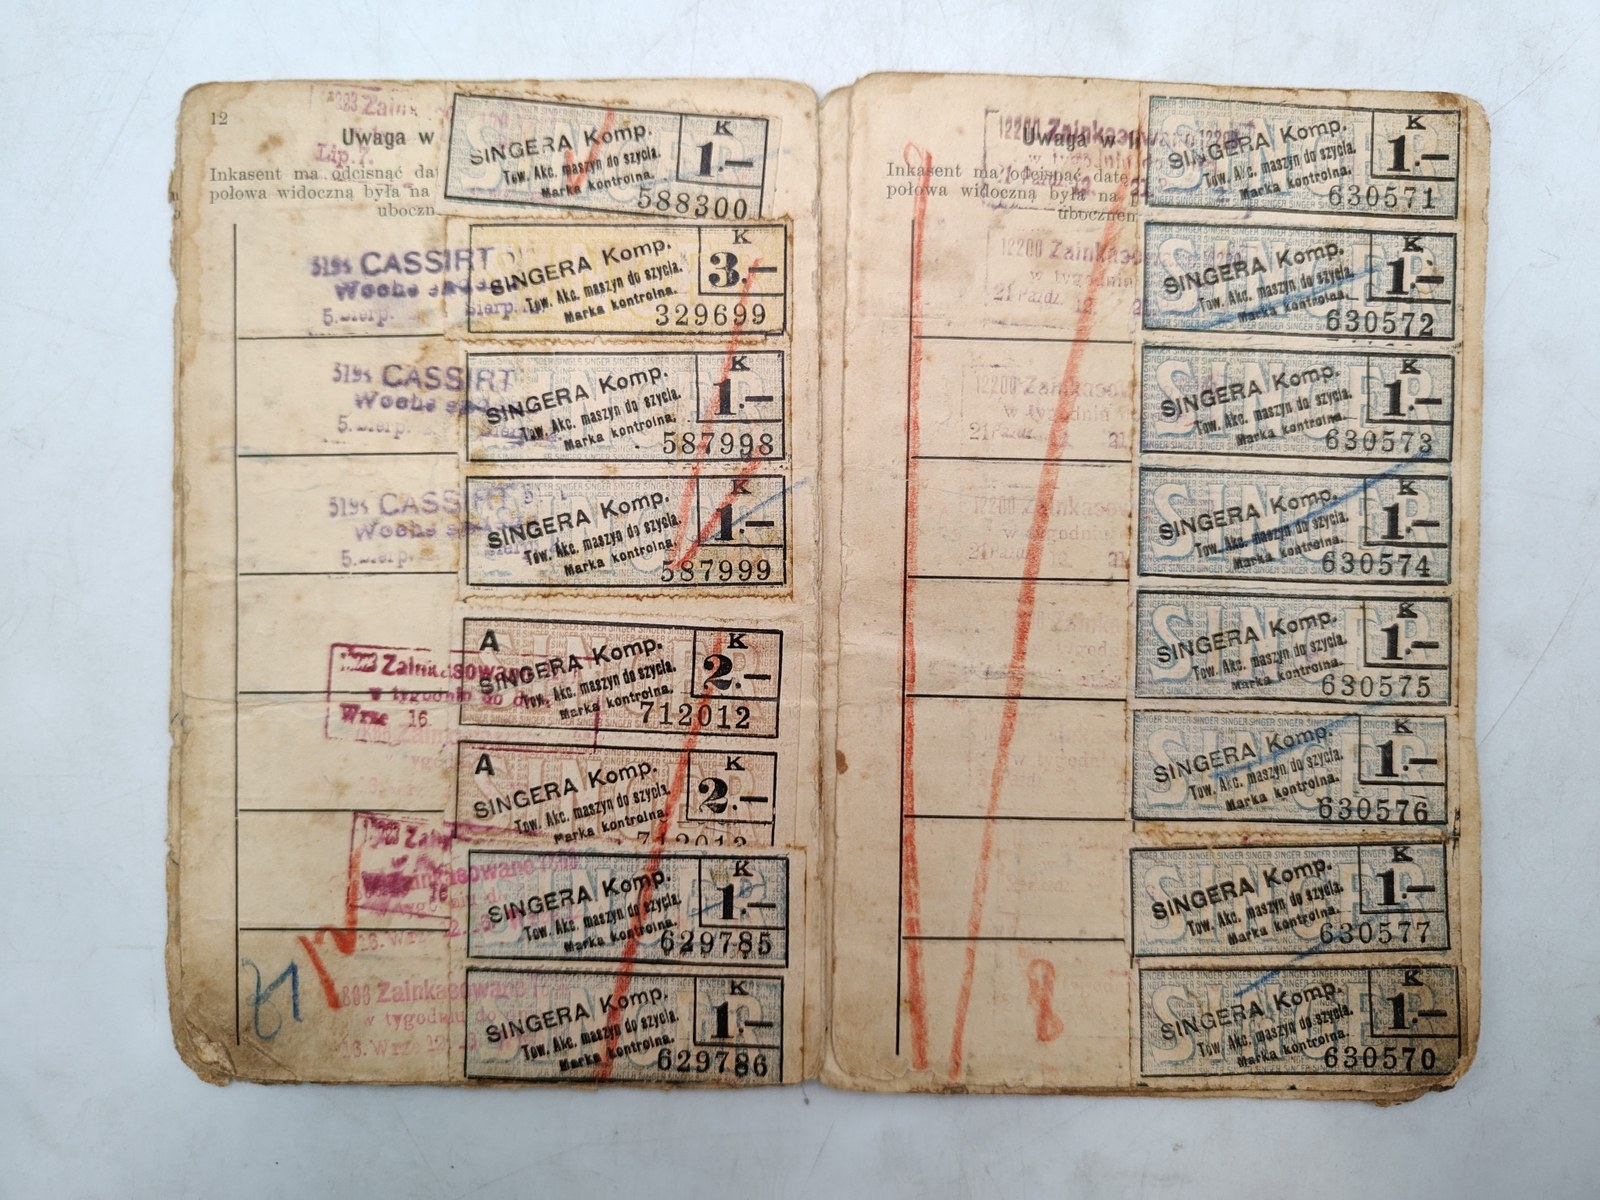 12
Uwaga w
Lip. 7.
Inkasent ma odcisnąć dat
połowa widoczną była na
uboczn
SINGERA Komp.
Tow. Akc. maszyn do szycia.
Marka kontrolna.
K
1.—
588300
5194 CASSIRT
Woche
5. Sierp.
SINGERA Komp.
Tow. Akc. maszyn do szycia.
Marka kontrolna.
K
3.—
329699
5194 CASSIRT
Woche
5. Sierp.
SINGERA Komp.
Tow. Akc. maszyn do szycia.
Marka kontrolna.
K
1.—
587998
5194 CASSIRT
Woche
5.
SINGERA Komp.
Tow. Akc. maszyn do szycia.
Marka kontrolna.
K
1.—
587999
Zainkasowano
w tygodniu do
Wrz 16
A
SINGERA Komp.
Tow. Akc. maszyn do szycia.
Marka kontrolna.
K
2.—
712012
A
SINGERA Komp.
Tow. Akc. maszyn do szycia.
Marka kontrolna.
K
2.—
SINGERA Komp.
Tow. Akc. maszyn do szycia.
Marka kontrolna.
K
1.—
629785
Zainkasowano
w tygodniu do
SINGERA Komp.
Tow. Akc. maszyn do szycia.
Marka kontrolna.
K
1.—
629786
12200 Zainkasowano 12200
Uwaga w
Inkasent ma odcisnąć datę
połowa widoczną była na p
ubocznem
SINGERA Komp.
Tow. Akc. maszyn do szycia.
Marka kontrolna.
K
1.—
630571
12200 Zainkasowano
w tygodniu
21 Paźdz. 12
SINGERA Komp.
Tow. Akc. maszyn do szycia.
Marka kontrolna.
K
1.—
630572
12200 Zainkasowano
w tygodniu
21 Paźdz.
SINGERA Komp.
Tow. Akc. maszyn do szycia.
Marka kontrolna.
K
1.—
630573
12200 Zainkasowano
w tygodniu
21 Paźdz.
SINGERA Komp.
Tow. Akc. maszyn do szycia.
Marka kontrolna.
K
1.—
630574
SINGERA Komp.
Tow. Akc. maszyn do szycia.
Marka kontrolna.
K
1.—
630575
SINGERA Komp.
Tow. Akc. maszyn do szycia.
Marka kontrolna.
K
1.—
630576
SINGERA Komp.
Tow. Akc. maszyn do szycia.
Marka kontrolna.
K
1.—
630577
8
SINGERA Komp.
Tow. Akc. maszyn do szycia.
Marka kontrolna.
K
1.—
630570